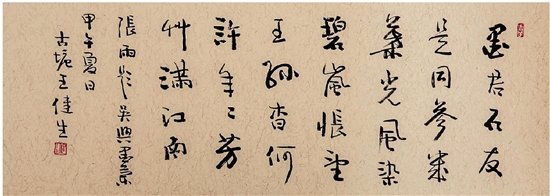 墨君石友
是同參
葉光風染
碧嵐悵望
王孫杳何
許年〻芳
艸滿江南
張雨題吳興墨
甲午夏日
王佳生